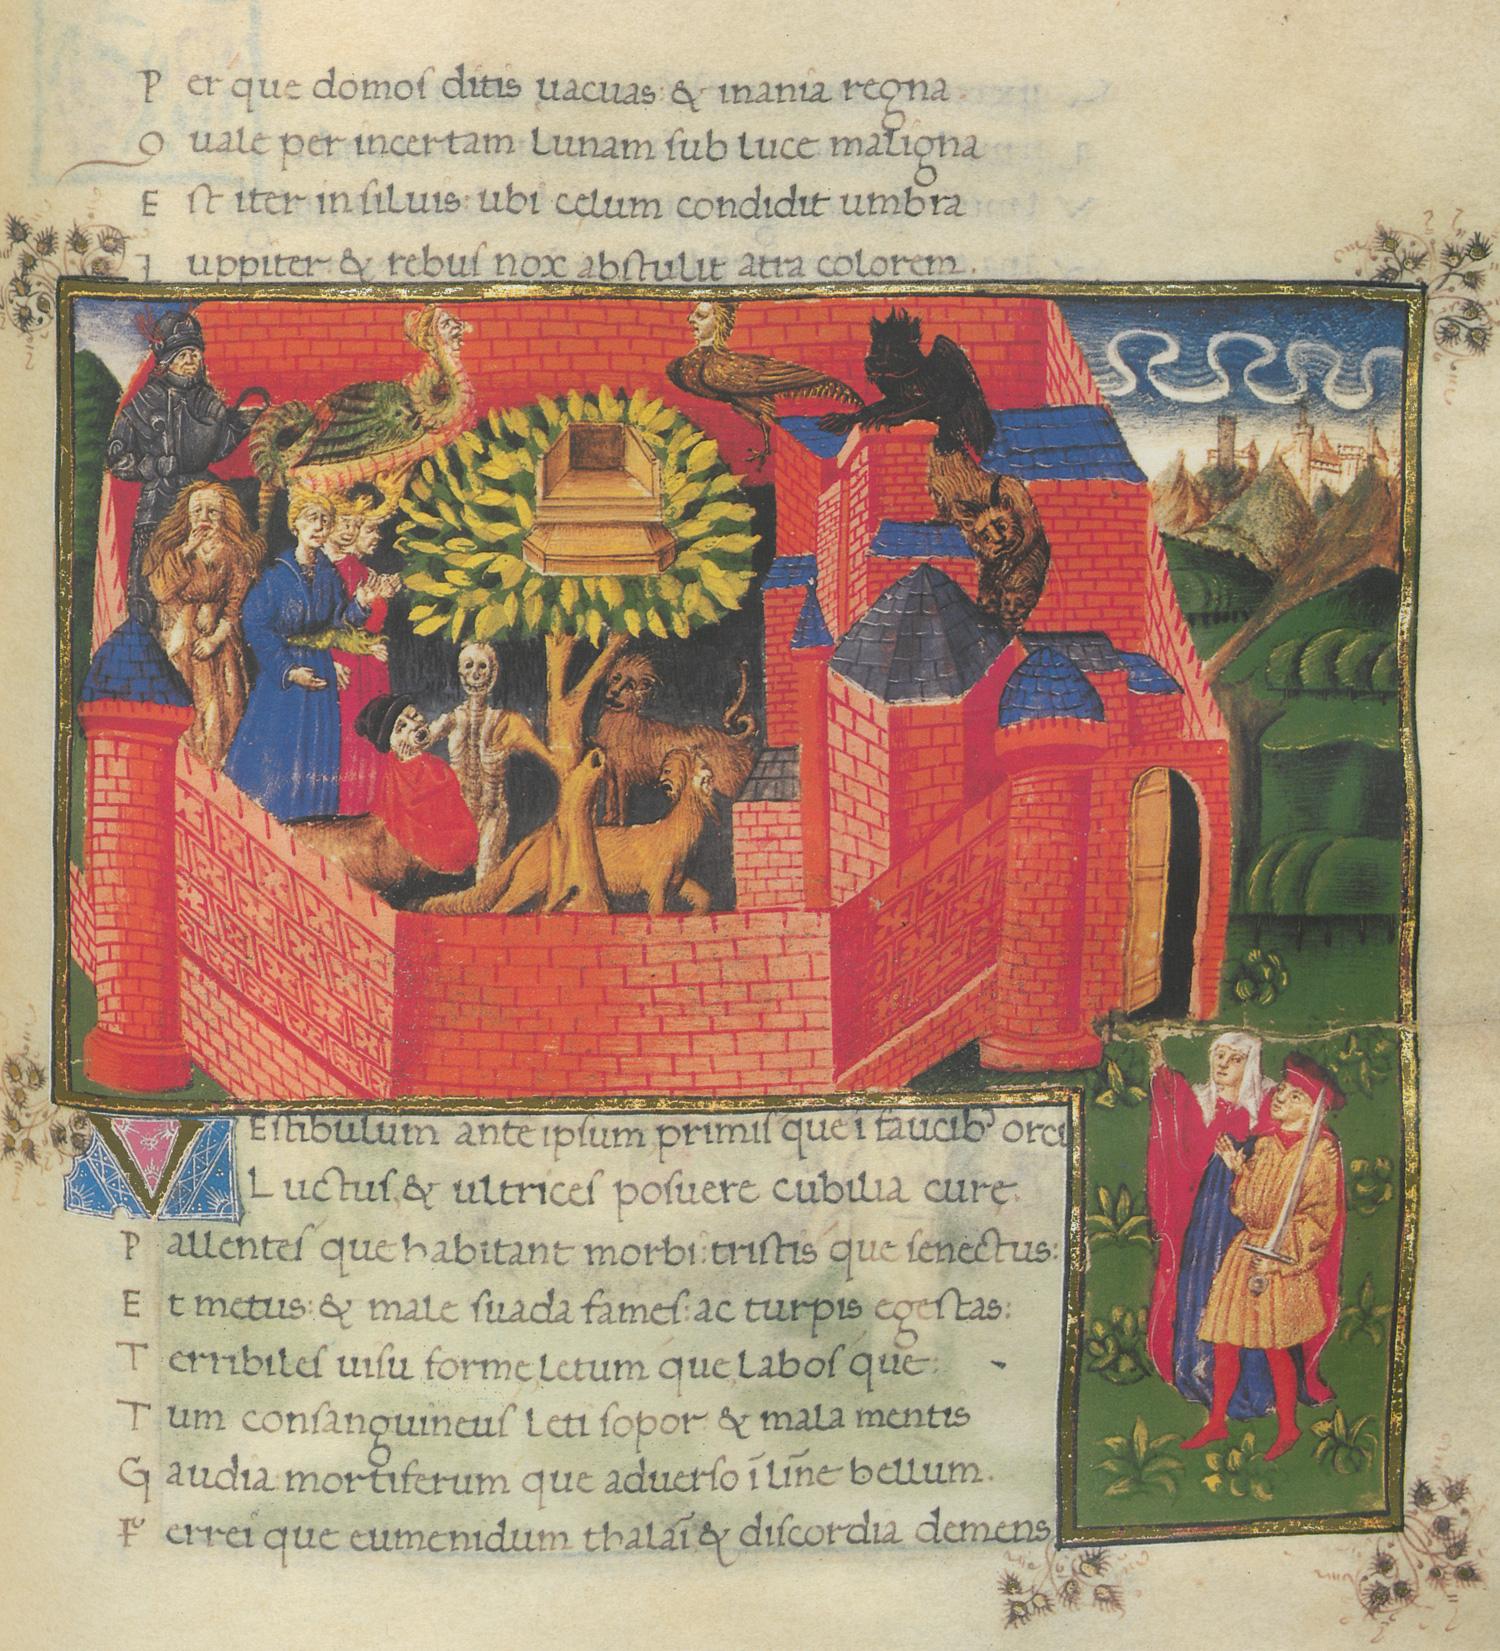 P er que domoſ ditis uacuas & inania regna
O uale per incertam lunam ſub luce maligna
E ſt iter in ſiluis: ubi celum condidit umbra
I uppiter & rebuſ nox abſtulit atra colorem.
VEſtibulum ante ipſum primiſ que i faucibꝰ orci
L uctuſ & ultriceſ poſuere cubilia cure.
P allenteſ que habitant morbi: triſtis que ſenectus:
E t metus: & male ſuada fameſ: ac turpis egeſtas:
T erribileſ uiſu forme letum que laboſ que:
T um conſanguineuſ leti ſopor & mala mentis
G audia mortiferum que aduerſo ī līīe bellum.
F errei que eumenidum thalaī & diſcordia demens